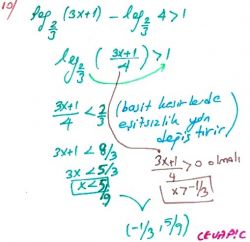 10/
log_{2/3} (3x+1) - log_{2/3} 4 > 1
log_{2/3} ( (3x+1)/4 ) > 1
(3x+1)/4 < 2/3 (basit kesirlerde
eşitsizlik yön
değiştirir)
3x+1 < 8/3
3x < 5/3
x < 5/9
(3x+1)/4 > 0 olmalı
x > -1/3
(-1/3, 5/9)
CEVAP:C